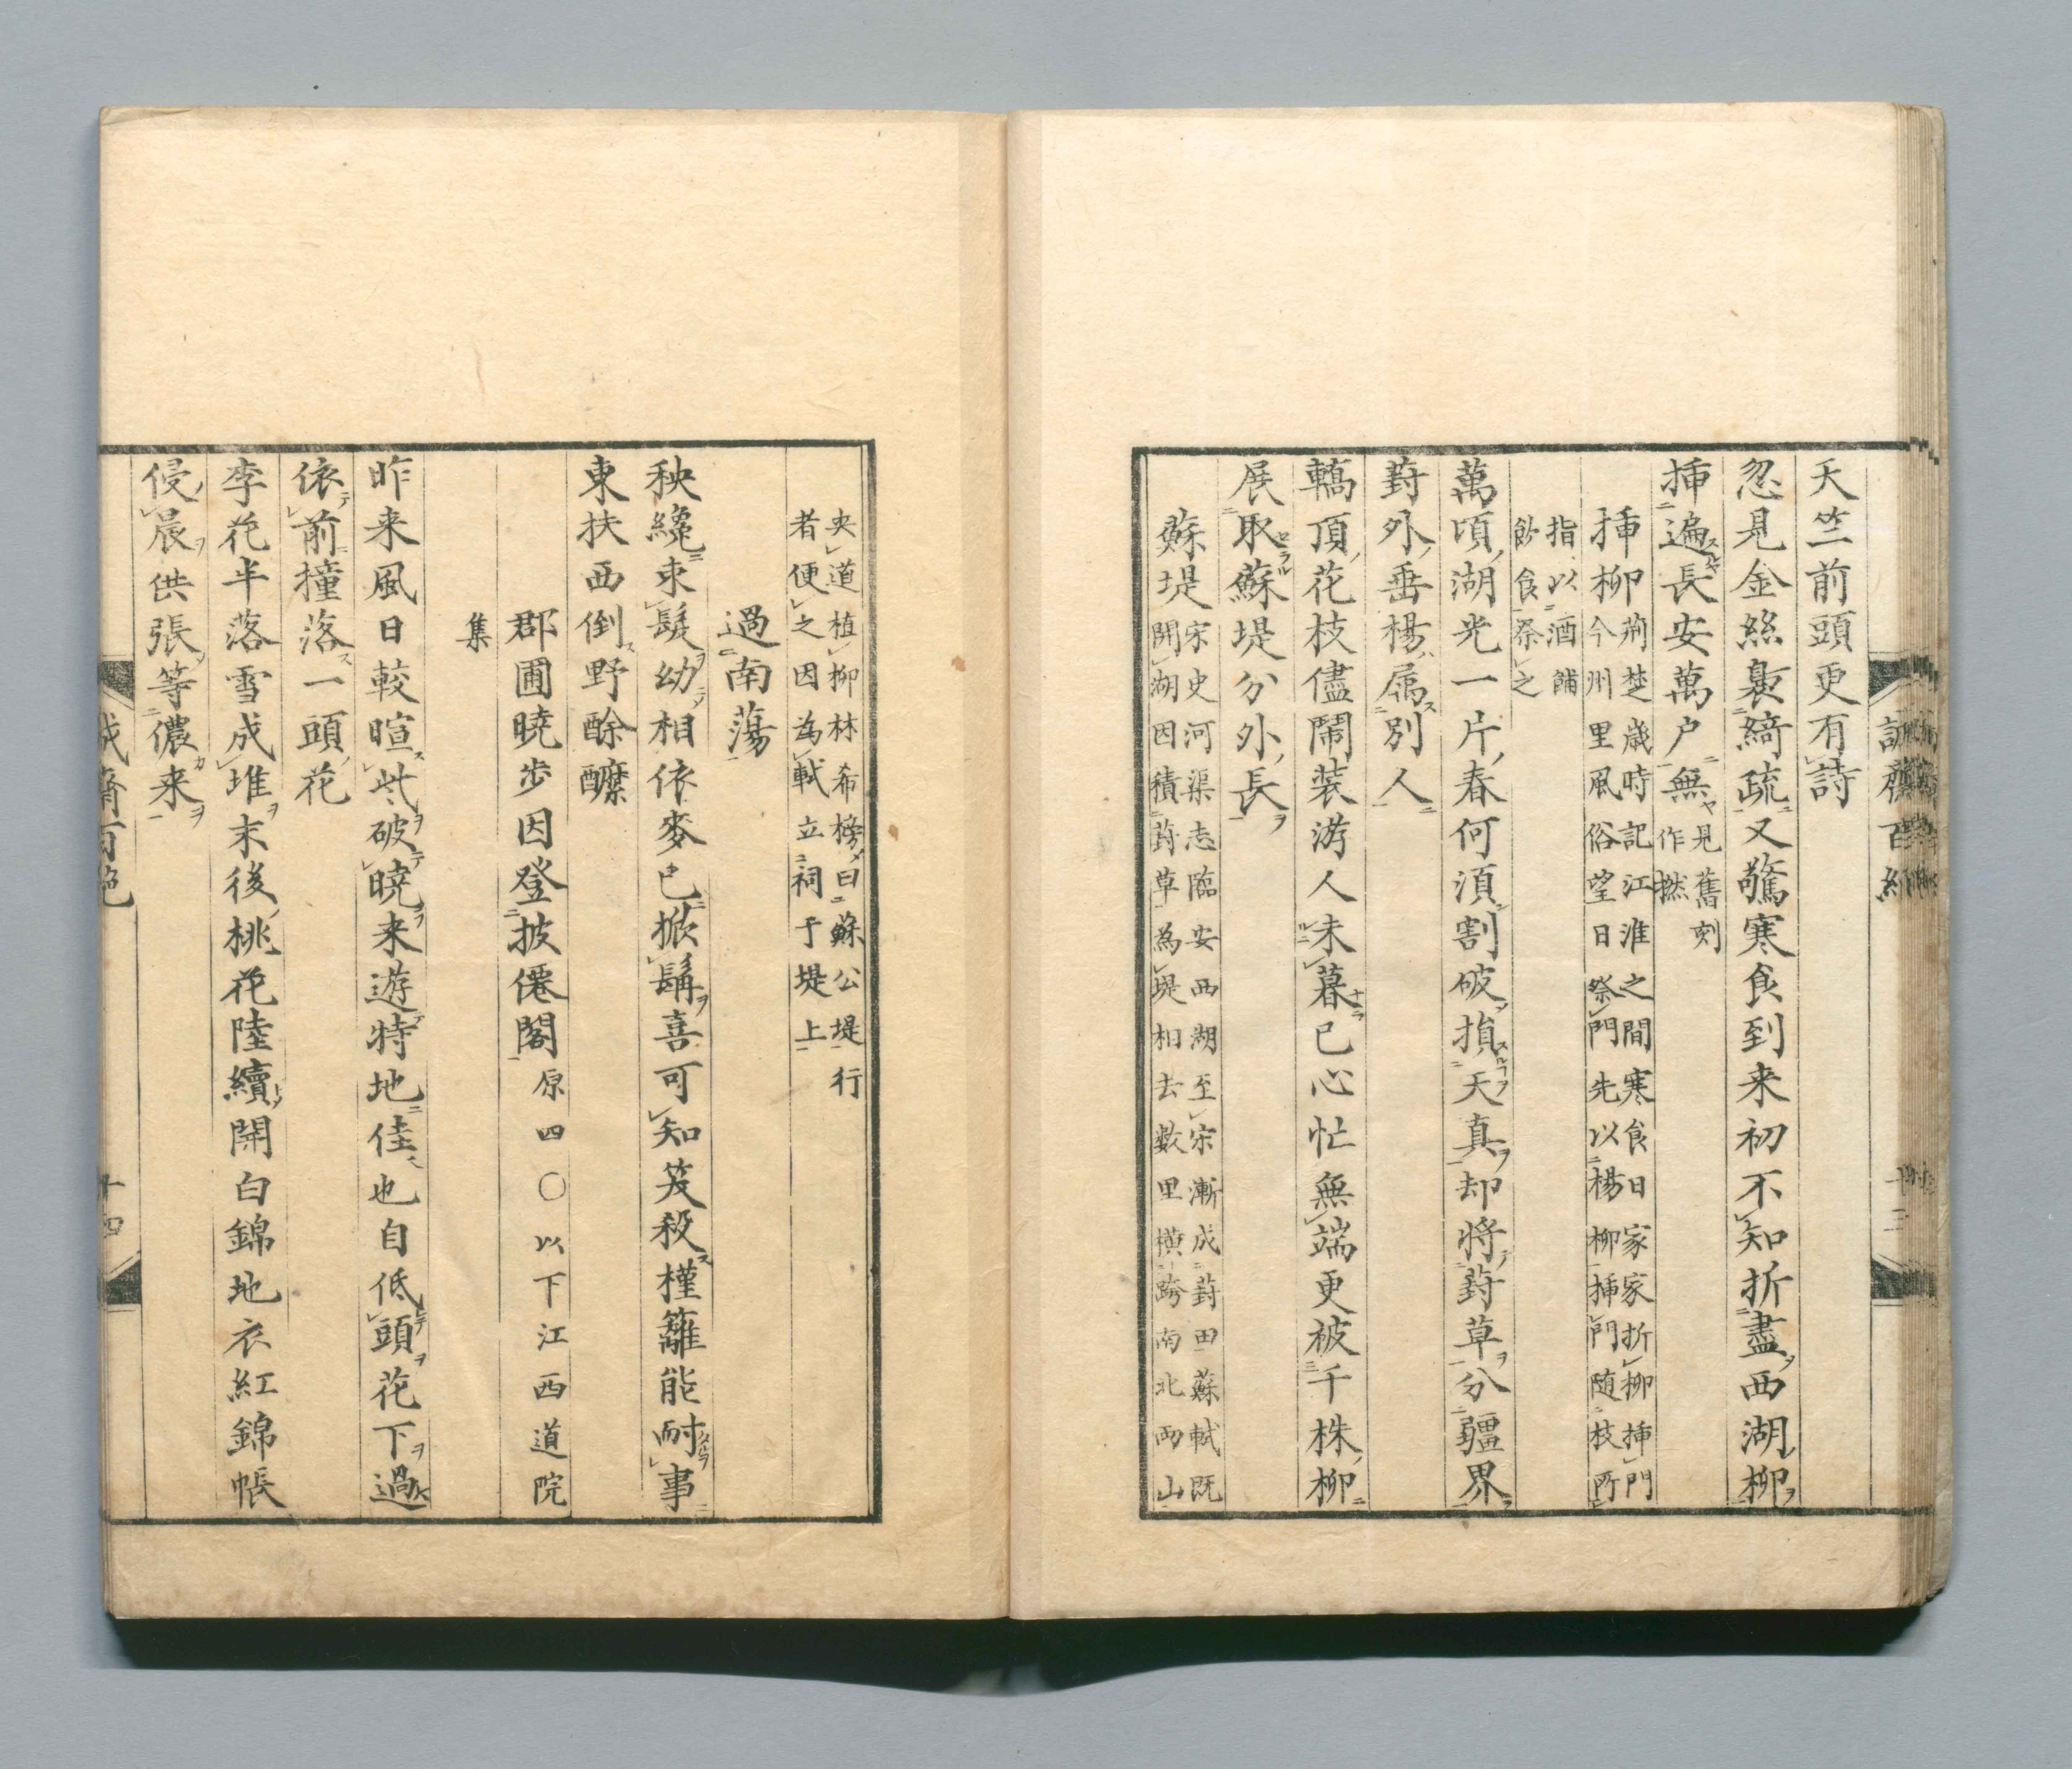 天竺前頭更有詩
忽見金絲裊綺疏又驚寒食到来初不知折盡西湖柳
挿遍長安萬戶無
見舊刻
作撚
挿柳
荊楚歲時記江淮之間寒食日家家折柳挿門
今州里風俗望日祭門先以楊柳挿門随枝所
指以酒餔
飲食祭之
萬頃湖光一片春何湏割破損天真却將葑草分疆界
葑外垂楊属別人
轎頂花枝儘鬧装游人未暮已心忙無端更被千株柳
展取蘇堤分外長
蘇堤
宋史河渠志臨安西湖至宋漸成葑田蘇軾既
開湖因積葑草為堤相去数里橫跨南北两山
夾道植柳林希榜曰蘇公堤行
者便之因為軾立祠于堤上
過南蕩
秧纔束髮幼相依麥已掀髯喜可知笈殺槿籬能耐事
東扶西倒野酴醾
郡圃暁步因登披僊閣原四〇以下江西道院
集
昨来風日較暄些破暁来遊特地佳也自低頭花下過
依前撞落一頭花
李花半落雪成堆末後桃花陸續開白錦地衣紅錦帳
侵晨供張等儂来
誠齋百絶
十四